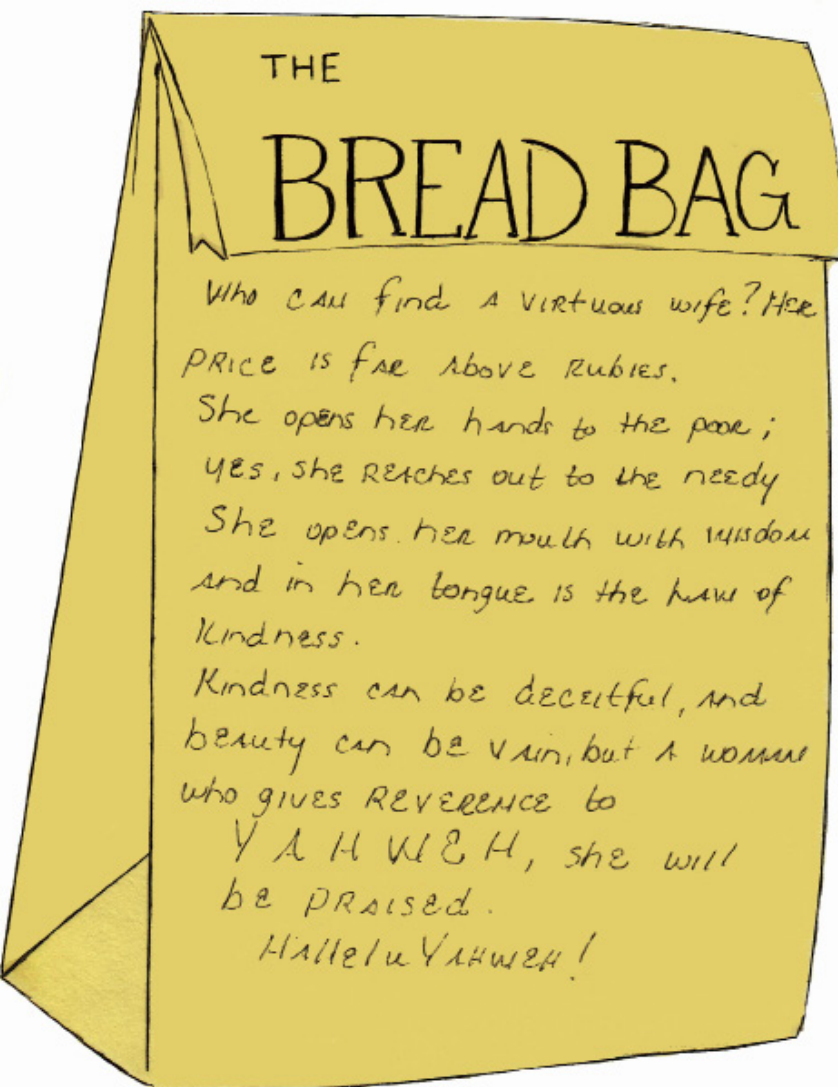 THE
BREAD BAG
Who can find a virtuous wife? Her
price is far above rubies.
She opens her hands to the poor;
yes, she reaches out to the needy
She opens her mouth with wisdom
and in her tongue is the law of
Kindness.
Kindness can be deceitful, and
beauty can be vain, but a woman
who gives reverence to
YAHWEH, she will
be praised.
HalleluYAHWEH!